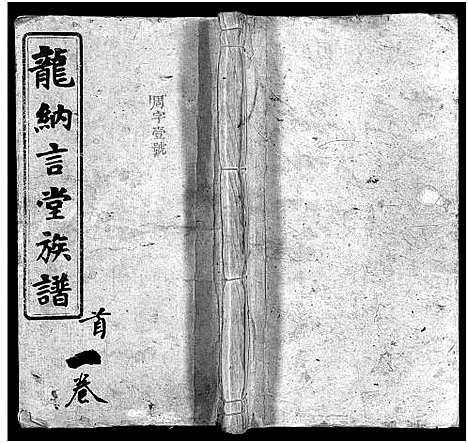 龍納言堂族譜
首一卷
周字壹號